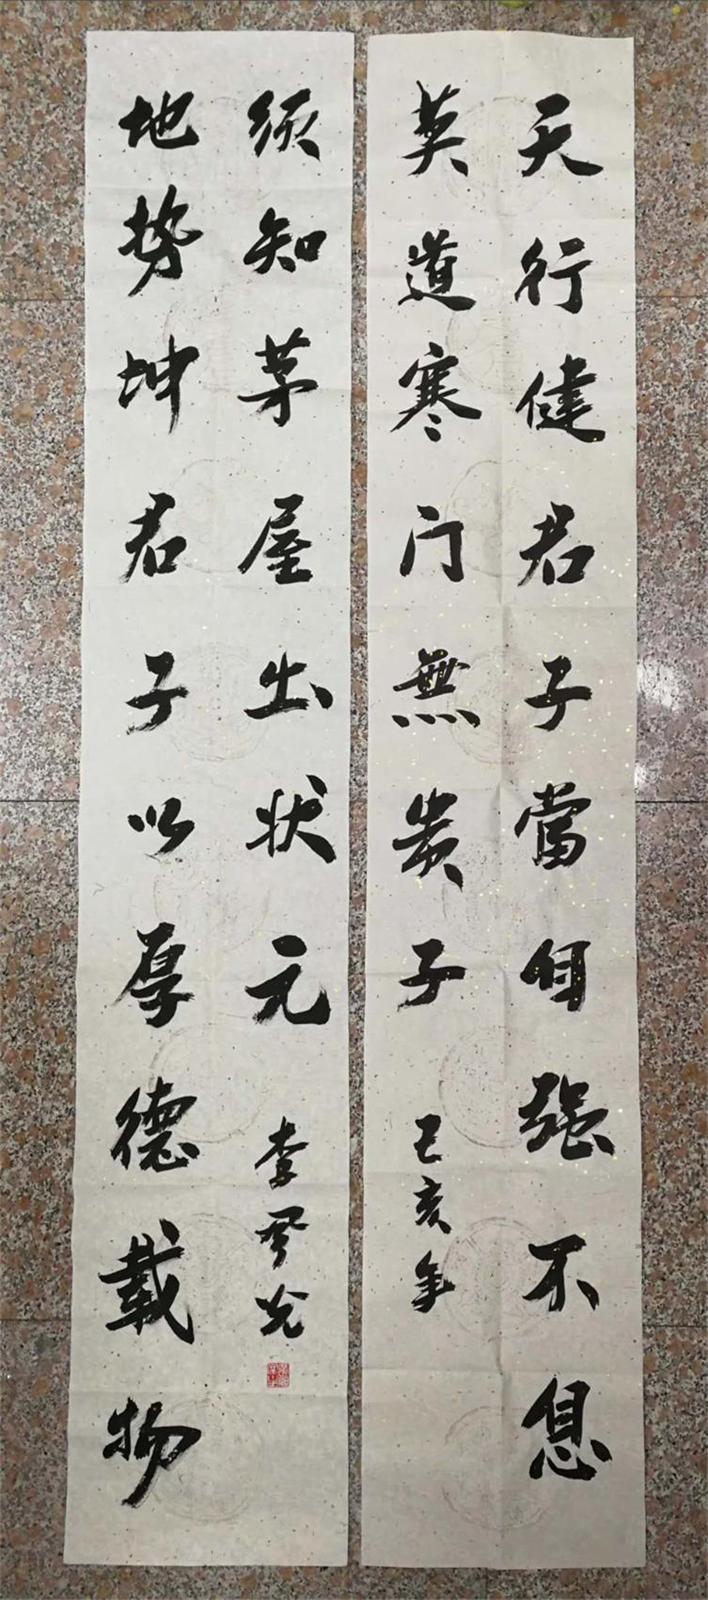 天行健君子當自强不息
莫道寒门無贵子
己亥年
地势坤君子以厚德載物
须知茅屋出状元
李